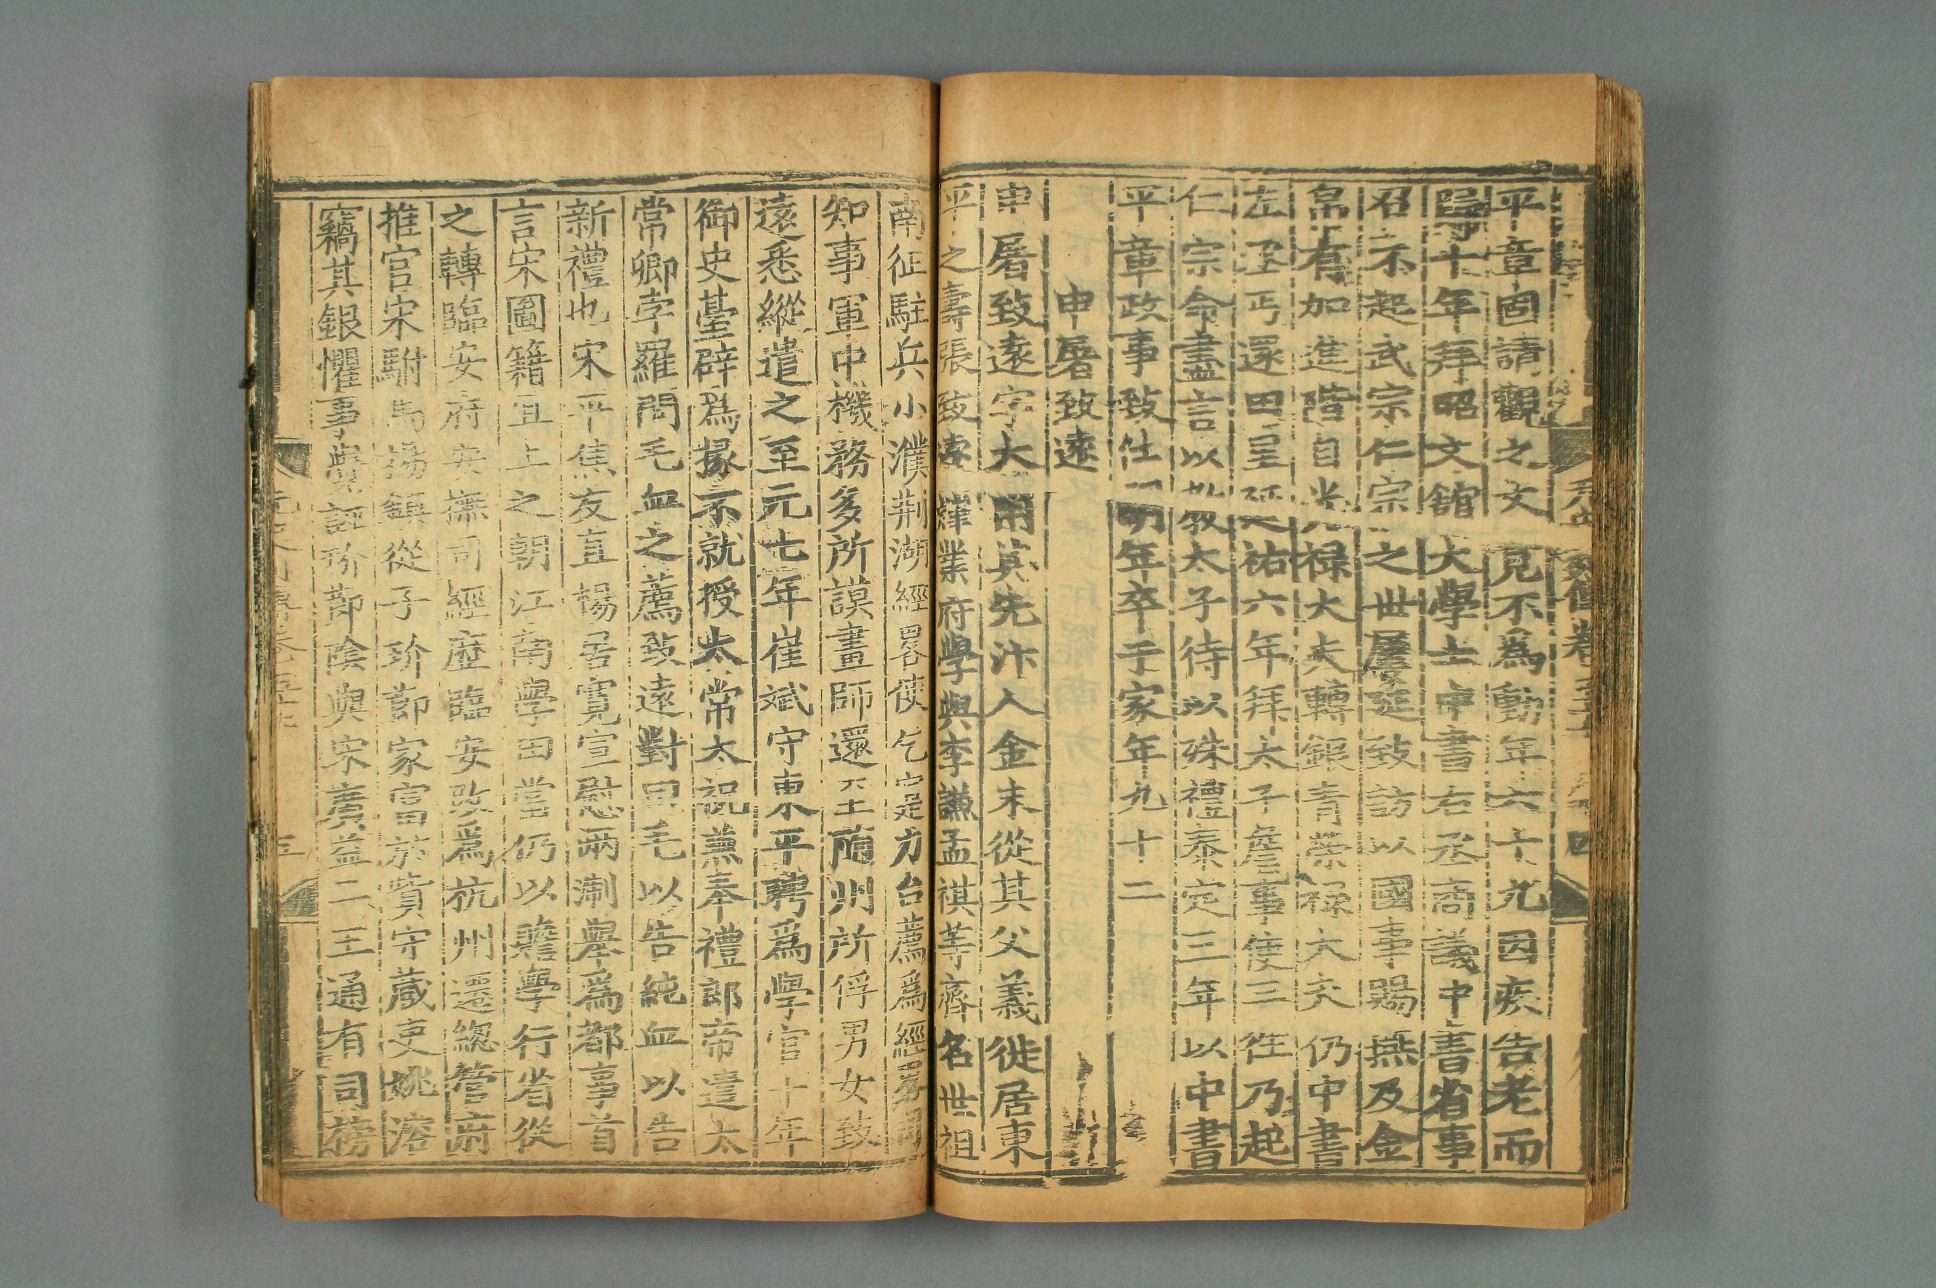 平章固請觀之文見不爲動年六十九因疾告老而
歸十年拜昭文館大學士中書右丞商議中書省事
召不起武宗仁宗之世屢延致訪以國事賜燕及金
帛有加進階自光禄大夫轉銀青榮禄大夫仍中書
左丞丐還田里延祐六年拜太子詹事使三往乃起
仁宗命盡言以教太子待以殊禮泰定三年以中書
平章政事致仕明年卒于家年九十二
申屠致遠
申屠致遠字大用其先汴人金末從其父義徙居東
平之壽張致遠肄業府學與李謙孟祺等齊名世祖
南征駐兵小濮荆湖經畧使乞寔力台薦爲經畧司
知事軍中機務多所謨畫師還至隨州所俘男女致
遠悉縱遣之至元七年崔斌守東平聘爲學官十年
御史臺辟爲掾不就授太常太祝兼奉禮郎帝遣太
常卿孛羅問毛血之薦致遠對曰毛以告純血以告
新禮也宋平焦友直楊居寬宣慰兩淛舉爲都事首
言宋圖籍宜上之朝江南學田當仍以贍學行省從
之轉臨安府安撫司經歷臨安改爲杭州遷總管府
推官宋駙馬楊鎮從子玠節家富於貲守藏吏姚溶
竊其銀懼事覺誣玠節陰與宋廣益二王通有司榜
元史列傳卷五十七
三